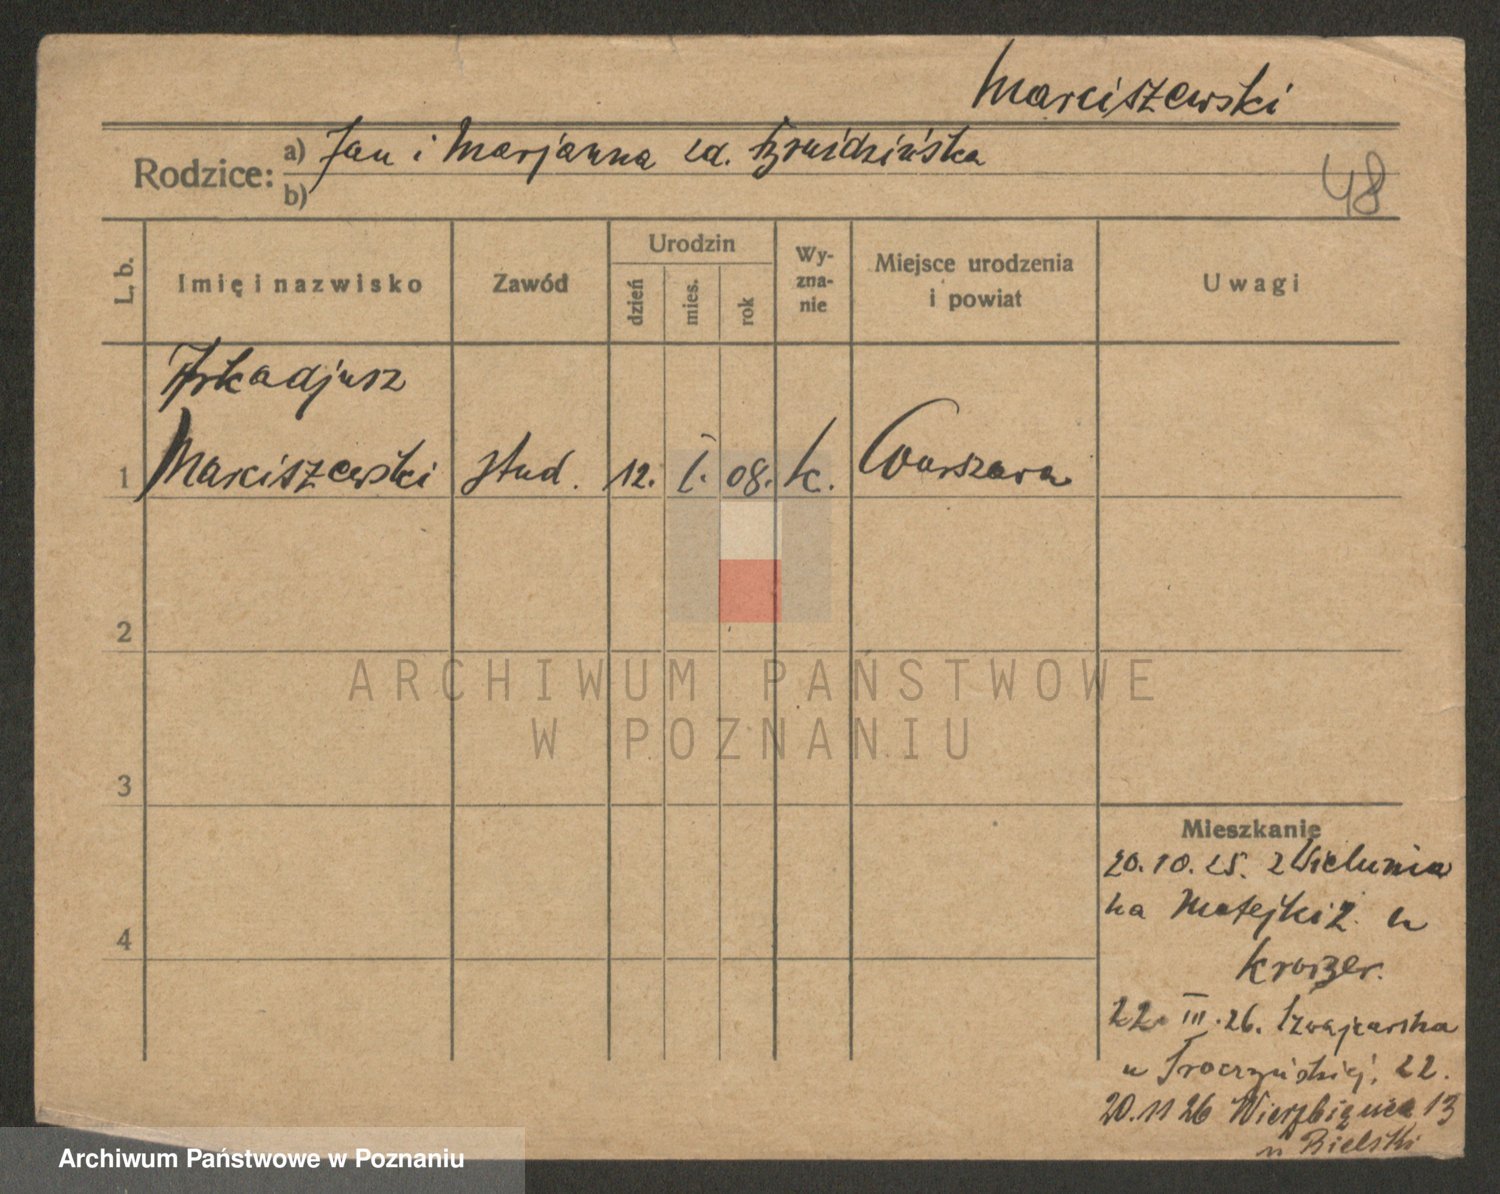 Marciszewski
Rodzice: a) Jan i Marjanna zd.
b)
48
L. b.
Imię i nazwisko
Zawód
Urodzin
dzień
mies.
rok
Wy-
zna-
nie
Miejsce urodzenia
i powiat
Uwagi
Arkadjusz
1 Marciszewski stud. 12. I. 08. k. Warszawa
2
3
4
ARCHIWUM PAŃSTWOWE
W POZNANIU
Mieszkanie
20.10.25. z Wielunia
na Matejki 2. u
22. III. 26. Szwajcarska
u Troczyńskiej, 22.
20.11 26 Wierzbięcice 13
u Bielski
Archiwum Państwowe w Poznaniu